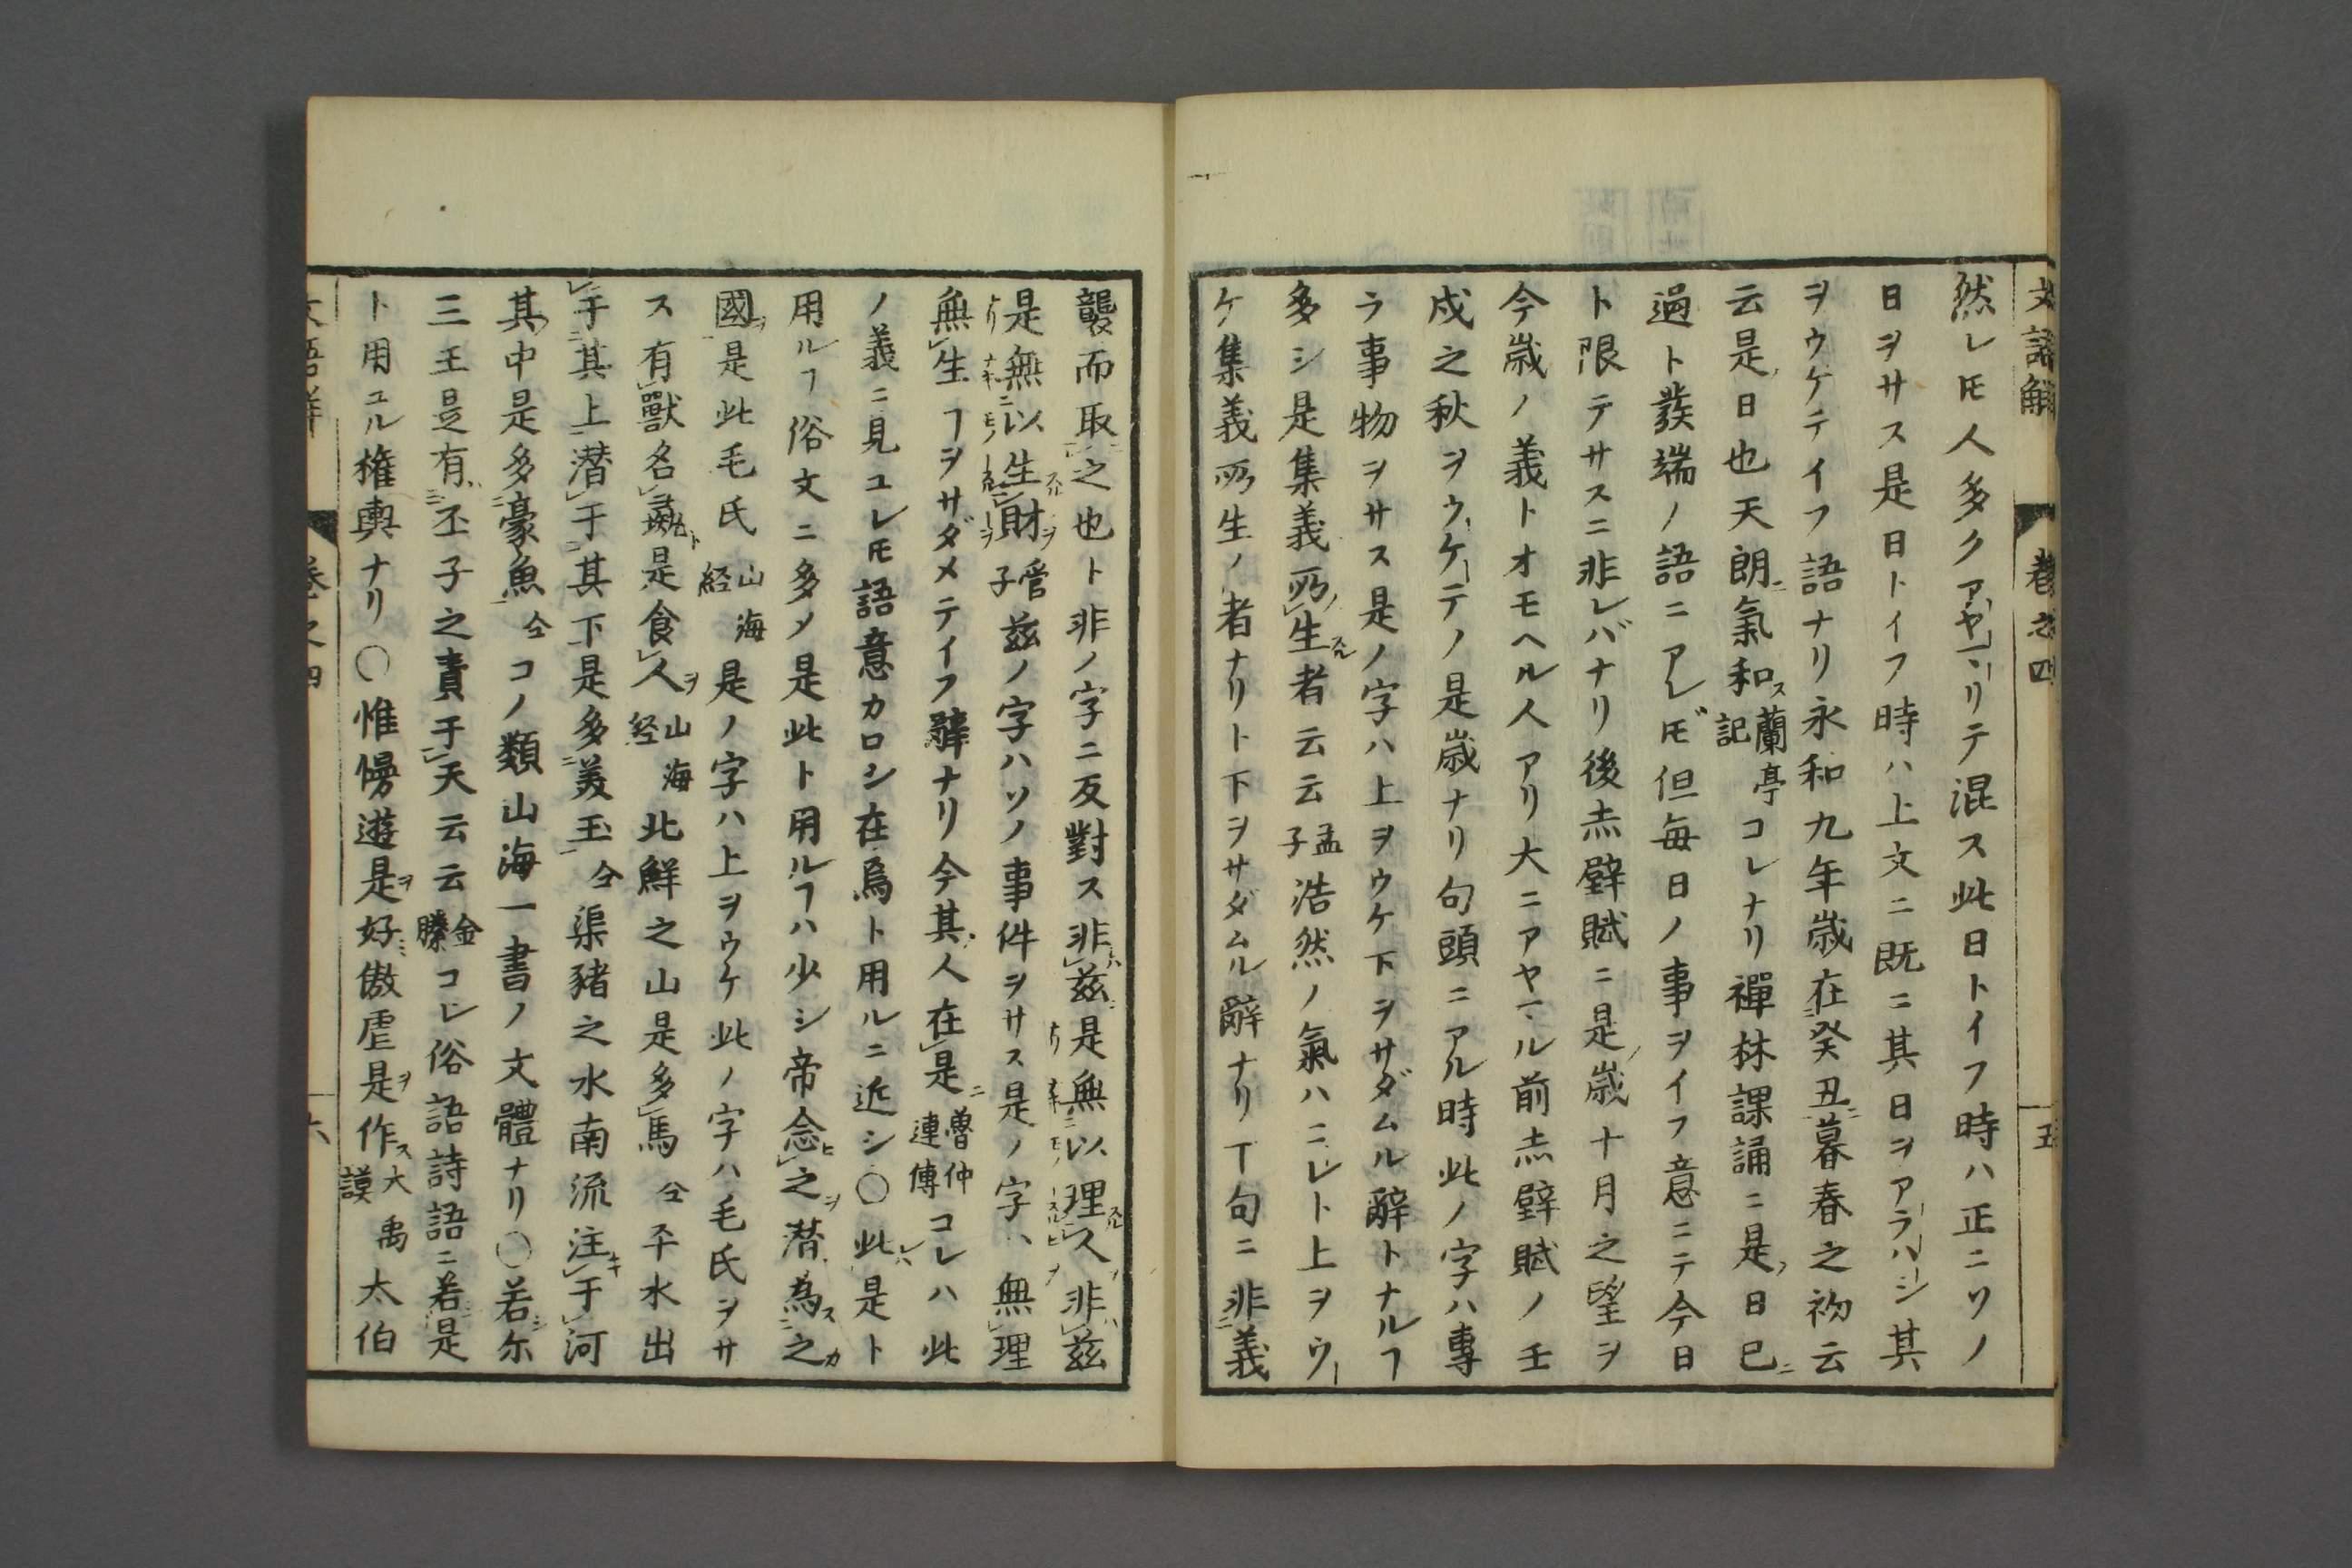 文語解 巻之四 五
然レ𪜈人多クアヤマリテ混ス此日トイフ時ハ正ニソノ
日ヲサス是日トイフ時ハ上文ニ既ニ其日ヲアラハシ其
ヲウケテイフ語ナリ永和九年歳在癸丑暮春之初云
云是日也天朗氣和蘭亭記コレナリ禪林課誦ニ是日已
過ト發端ノ語ニアレ𪜈但毎日ノ事ヲイフ意ニテ今日
ト限テサスニ非レバナリ後赤壁賦ニ是歳十月之望ヲ
今歳ノ義トオモヘル人アリ大ニアヤマル前赤壁賦ノ壬
戌之秋ヲウケテノ是歳ナリ句頭ニアル時此ノ字ハ專
ラ事物ヲサス是ノ字ハ上ヲウケ下ヲサダムル辭トナルヿ
多シ是集義所生者云云孟子浩然ノ氣ハコレト上ヲウ
ケ集義所生ノ者ナリト下ヲサダムル辭ナリ下句ニ非義
襲而取之也ト非ノ字ニ反對ス非茲是無以理人非茲
是無以生財管子茲ノ字ハソノ事件ヲサス是ノ字ハ無理
無生ヿヲサダメテイフ辭ナリ今其人在是魯仲連傳コレハ此
ノ義ニ見ユレ𪜈語意カロシ在焉ト用ルニ近シ○此是ト
用ルヿ俗文ニ多メ是此ト用ルヿハ少シ帝念之潜為之
國是此毛氏山海経是ノ字ハ上ヲウケ此ノ字ハ毛氏ヲサ
ス有獸名是食人山海経北鮮之山是多馬仝平水出
于其上潜于其下是多美玉仝渠豬之水南流注于河
其中是多豪魚仝コノ類山海一書ノ文體ナリ○若尓
三王是有丕子之責于天云云金縢コレ俗語詩語ニ若是
ト用ユル権輿ナリ○惟慢遊是好傲虐是作大禹謨太伯
文語解 巻之四 六